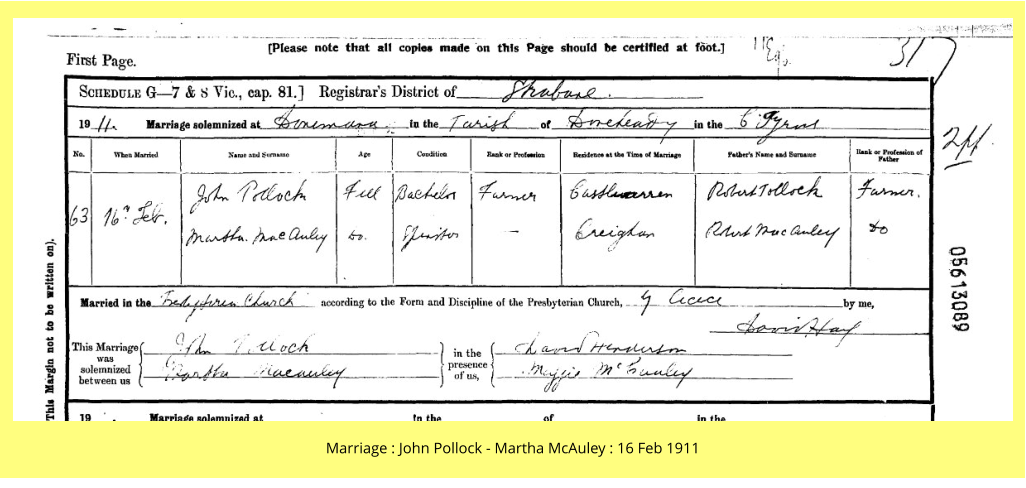 [Please note that all copies made on this Page should be certified at foot.]
317
First Page.
SCHEDULE G—7 & 8 Vic., cap. 81.] Registrar's District of Strabane.
19 11. Marriage solemnized at Donemana in the Parish of Donoheady in the Co Tyrone
No. When Married Name and Surname Age Condition Rank or Profession Residence at the Time of Marriage Father's Name and Surname Rank or Profession of Father
63 16th Feb. John Pollock Full Bachelor Farmer Castlewarren Robert Pollock Farmer.
Martha MacAuley do. Spinster — Creighan Robert MacAuley do
Married in the Presbyterian Church according to the Form and Discipline of the Presbyterian Church, by me,
David Hay
This Marriage was solemnized between us John Pollock Martha Macauley in the presence of us, David Henderson Maggie McCauley
19 . Marriage solemnized at in the of in the
This Margin not to be written on).
05613089
Marriage : John Pollock - Martha McAuley : 16 Feb 1911